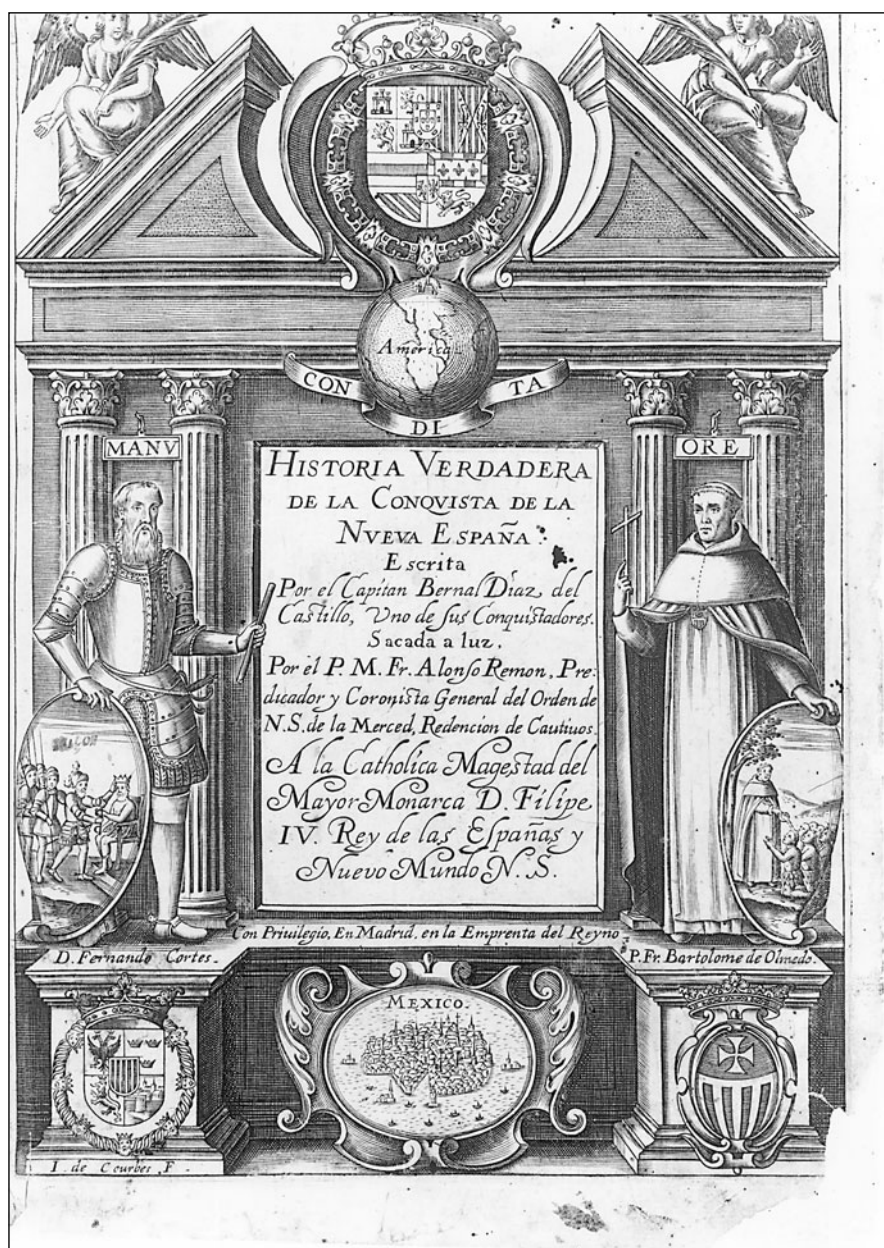 America
CON
DI
TA
MANV
ORE
HISTORIA VERDADERA
DE LA CONQVISTA DE LA
NVEVA ESPAÑA.
Escrita
Por el Capitan Bernal Diaz del
Castillo, Vno de sus Conquistadores.
Sacada a luz,
Por el P. M. Fr. Alonso Remon, Pre-
dicador y Coronista General del Orden de
N. S. de la Merced, Redencion de Cautiuos.
A la Catholica Magestad del
Mayor Monarca D. Filipe
IV. Rey de las Españas y
Nuevo Mundo N. S.
Con Priuilegio, En Madrid, en la Emprenta del Reyno
D. Fernando Cortes.
P. Fr. Bartolome de Olmedo.
MEXICO.
I. de Courbes F.